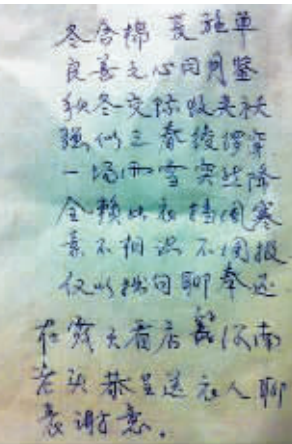 冬舍棉 夏施单
良善之心同月鉴
秋冬交际收夹袄
强似三春绫锣穿
一场雨雪突然降
全赖此衣挡风寒
素不相识不图报
仅以拙句聊奉还
在露天看店 河南
老头恭呈送衣人聊
表谢意。